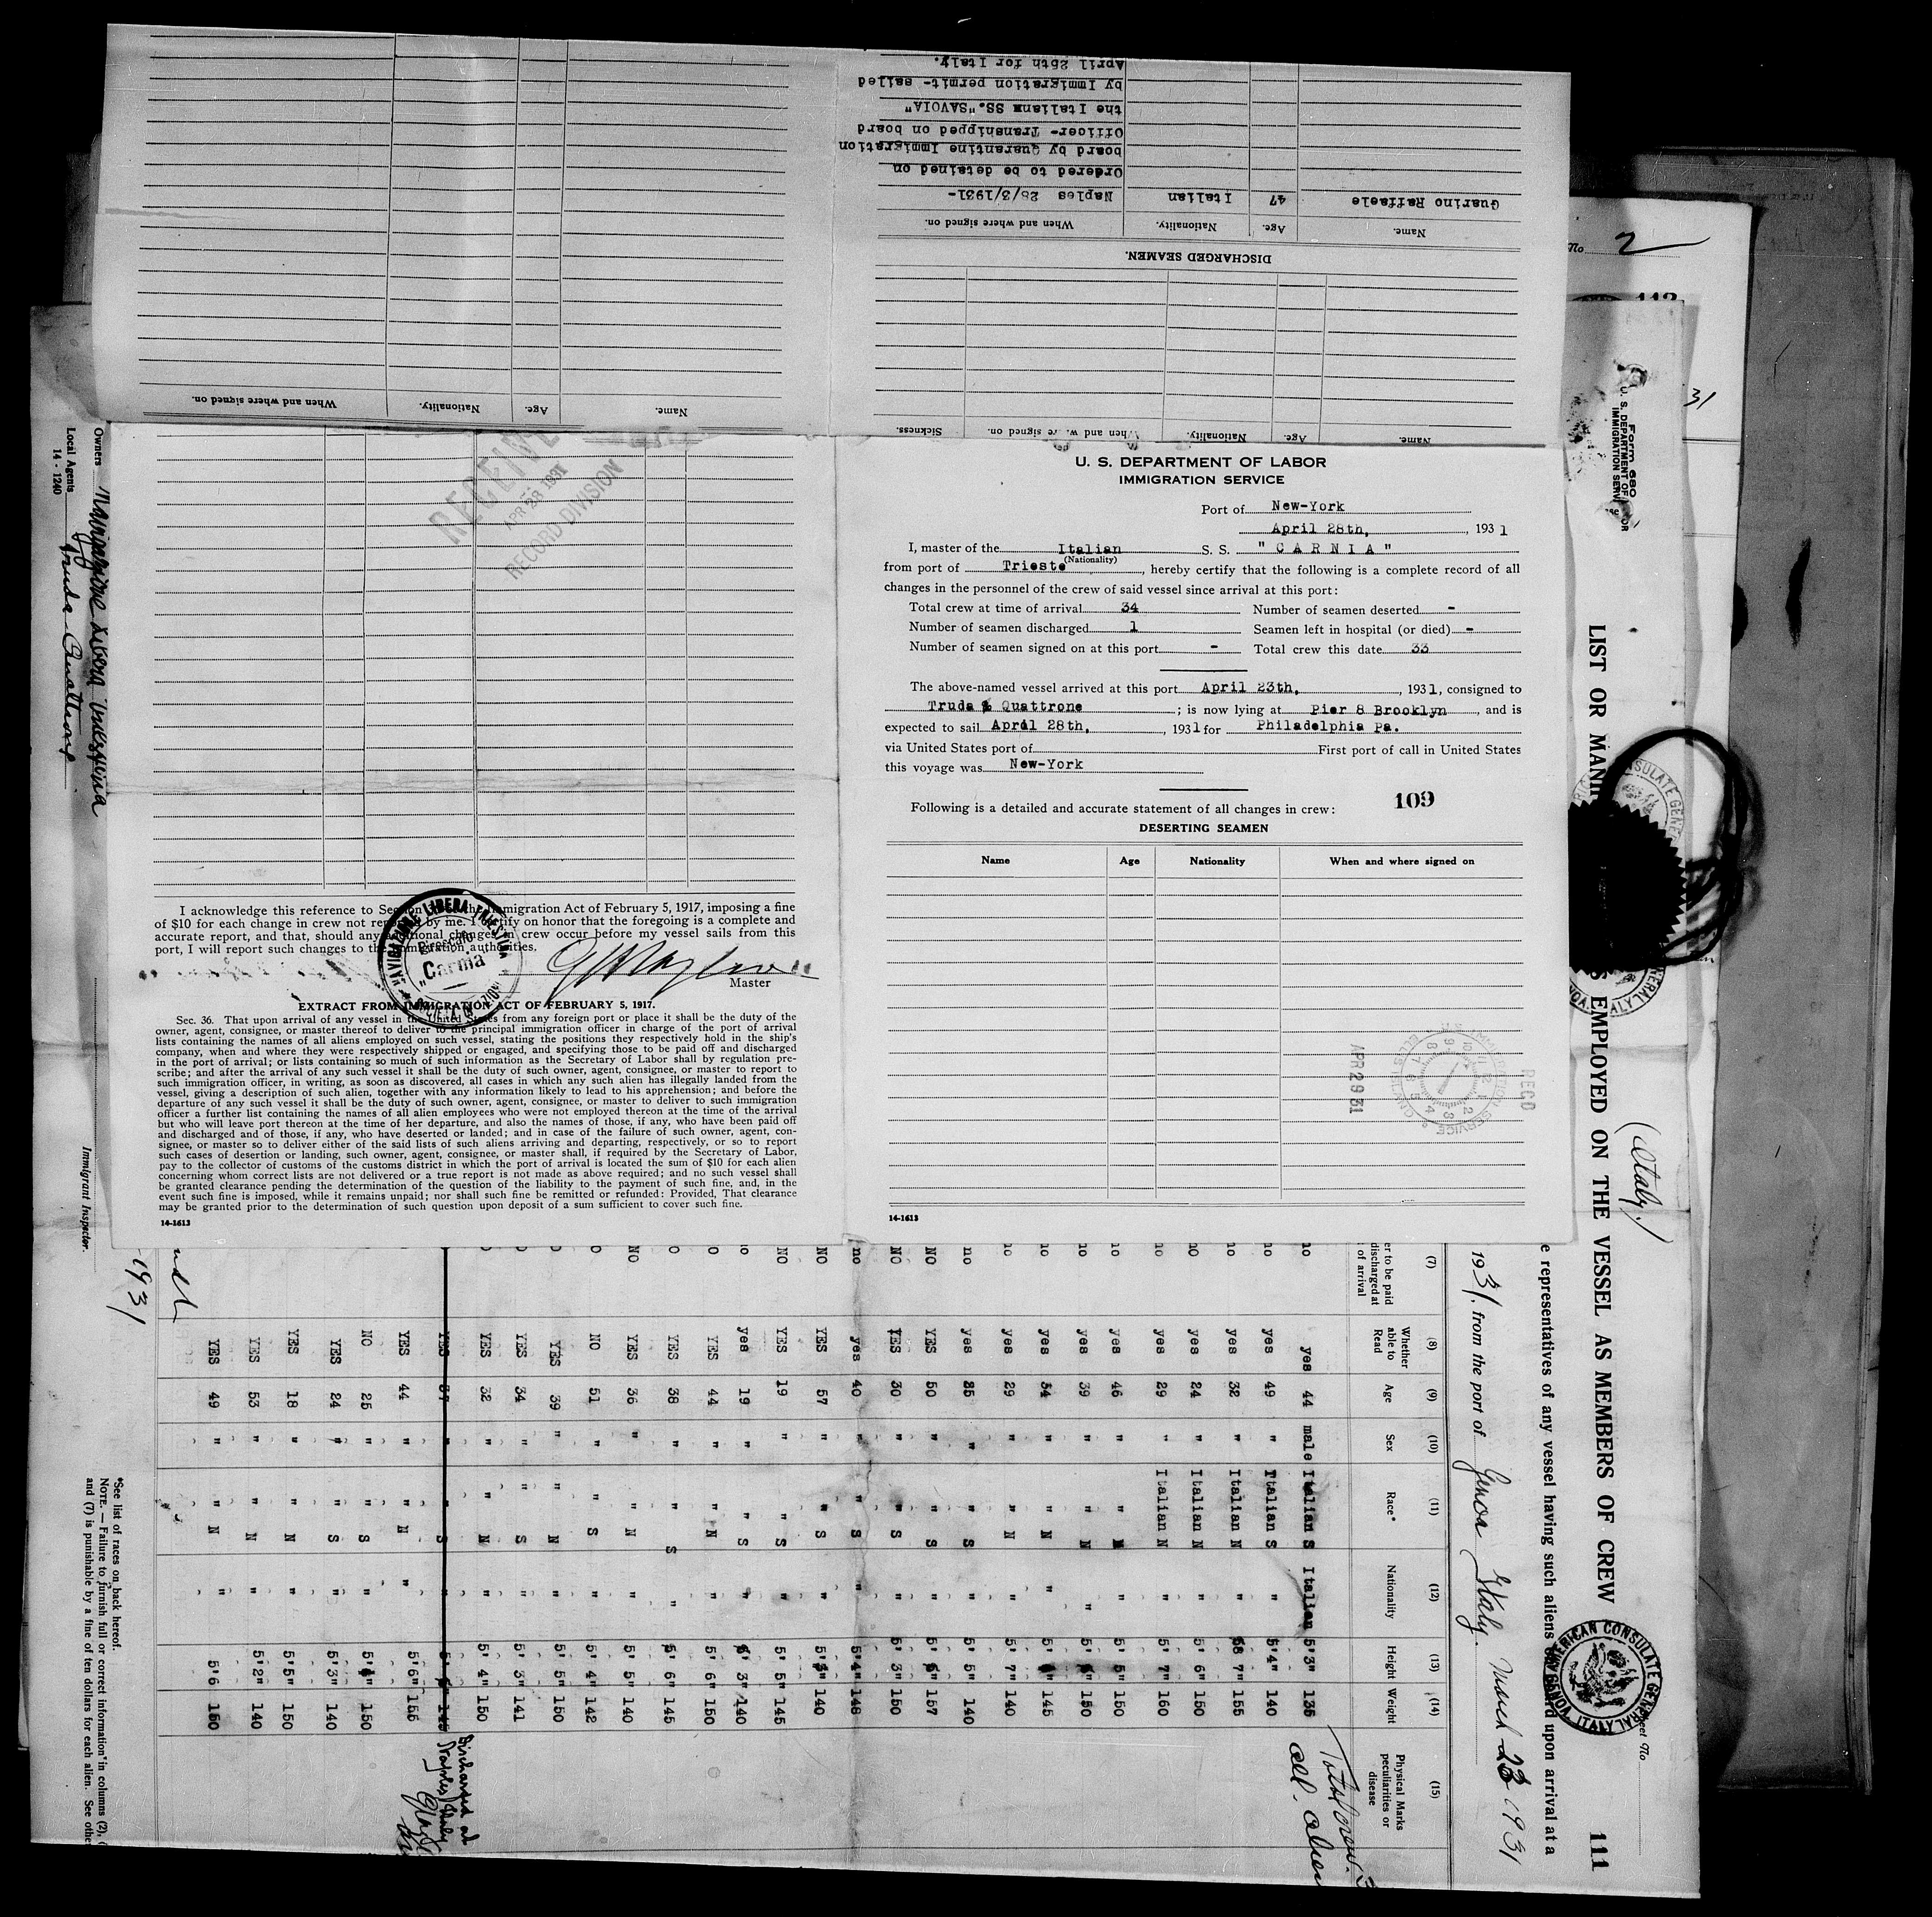 U. S. DEPARTMENT OF LABOR
IMMIGRATION SERVICE
Port of New-York
April 28th, , 1931
I, master of the Italian S. S. " C A R N I A "
(Nationality)
from port of Trieste , hereby certify that the following is a complete record of all
changes in the personnel of the crew of said vessel since arrival at this port:
Total crew at time of arrival 34 Number of seamen deserted -
Number of seamen discharged 1 Seamen left in hospital (or died) -
Number of seamen signed on at this port - Total crew this date 33
The above-named vessel arrived at this port April 23th, , 1931, consigned to
Truda & Quattrone ; is now lying at Pier 8 Brooklyn , and is
expected to sail April 28th, , 1931 for Philadelphia Pa.
via United States port of First port of call in United States
this voyage was New-York
Following is a detailed and accurate statement of all changes in crew: 109
DESERTING SEAMEN
Name Age Nationality When and where signed on
REC'D
APR 29 31
14-1613
DISCHARGED SEAMEN.
Name. Age. Nationality. When and where signed on.
Guarino Raffaele 47 Italian Naples 28/3/1931-
Ordered to be detained on
board by Quarantine Immigration
Officer- Transhipped on board
the Italian SS."SAVOIA"
by Immigration permit- sailed
April 25th for Italy.
Name. Age. Nationality. When and where signed on. Sickness.
Name. Age. Nationality. When and where signed on.
RECEIVED
APR 28 1931
RECORD DIVISION
I acknowledge this reference to Section 36 of the Immigration Act of February 5, 1917, imposing a fine
of $10 for each change in crew not reported by me. I certify on honor that the foregoing is a complete and
accurate report, and that, should any additional changes in crew occur before my vessel sails from this
port, I will report such changes to the immigration authorities.
NAVIGAZIONE LIBERA TRIESTINA
Piroscafo
"Carnia"
Master
EXTRACT FROM IMMIGRATION ACT OF FEBRUARY 5, 1917.
Sec. 36. That upon arrival of any vessel in the United States from any foreign port or place it shall be the duty of the
owner, agent, consignee, or master thereof to deliver to the principal immigration officer in charge of the port of arrival
lists containing the names of all aliens employed on such vessel, stating the positions they respectively hold in the ship's
company, when and where they were respectively shipped or engaged, and specifying those to be paid off and discharged
in the port of arrival; or lists containing so much of such information as the Secretary of Labor shall by regulation pre-
scribe; and after the arrival of any such vessel it shall be the duty of such owner, agent, consignee, or master to report to
such immigration officer, in writing, as soon as discovered, all cases in which any such alien has illegally landed from the
vessel, giving a description of such alien, together with any information likely to lead to his apprehension; and before the
departure of any such vessel it shall be the duty of such owner, agent, consignee, or master to deliver to such immigration
officer a further list containing the names of all alien employees who were not employed thereon at the time of the arrival
but who will leave port thereon at the time of her departure, and also the names of those, if any, who have been paid off
and discharged and of those, if any, who have deserted or landed; and in case of the failure of such owner, agent, con-
signee, or master so to deliver either of the said lists of such aliens arriving and departing, respectively, or so to report
such cases of desertion or landing, such owner, agent, consignee, or master shall, if required by the Secretary of Labor,
pay to the collector of customs of the customs district in which the port of arrival is located the sum of $10 for each alien
concerning whom correct lists are not delivered or a true report is not made as above required; and no such vessel shall
be granted clearance pending the determination of the question of the liability to the payment of such fine, and, in the
event such fine is imposed, while it remains unpaid; nor shall such fine be remitted or refunded: Provided, That clearance
may be granted prior to the determination of such question upon deposit of a sum sufficient to cover such fine.
14-1613
No 2
Form 680
U. S. DEPARTMENT OF LABOR
IMMIGRATION SERVICE
EMPLOYED ON THE VESSEL AS MEMBERS OF CREW
LIST OR
111
(Italy)
representatives of any vessel having such aliens on board upon arrival at a
1931, from the port of Genoa Italy. March 23 1931
AMERICAN CONSULATE GENERAL
GENOA, ITALY
(7) (8) (9) (10) (11) (12) (13) (14) (15)
er to be paid discharged at of arrival
Whether able to Read
Age Sex Race* Nationality Height Weight
Physical Marks peculiarities or disease
no yes 44 male Italian S Italian 5'3" 135
no yes 49 " Italian S " 5'4" 140
no yes 32 " Italian N " 7" 155
no yes 24 " Italian N " 5' 6" 150
no yes 29 " Italian N " 5' 7" 160
no yes 46 " " N " 5' 5" 150
no yes 39 " " N " 150
no yes 34 " " N " 145
no yes 29 " " N " 5' 7" 140
no yes 25 " " S " 5' 5" 140
NO YES 50 " " S " 157
NO YES 30 " " S " 5' 3" 150
no yes 40 " " S " 5'4" 148
NO YES 57 " " S " 140
NO YES 19 " " S " 5' 5" 145
yes 19 " " S " 3" 140
YES 44 " " N " 5' 6" 150
YES 38 " " S " 5' 6" 145
NO YES 36 " " N " 5' 5" 140
NO 51 " " S " 5' 4" 142
YES 39 " " N " 5' 5" 150
YES 34 " " S " 5' 3" 141
YES 32 " " N " 5' 4" 150
YES 37 " " S " 145
Discharged at Naples Italy
YES 44 " " N " 5'6" 155
NO 25 " " S " 150
YES 24 " " S " 5'3" 140
YES 18 " " N " 5'5" 150
YES 53 " " N " 5'2" 140
YES 49 " " N " 5'6 150
1931
Owners Navigazione Libera Triestina
Local Agents Truda Quattrone
14-1240
Immigrant Inspector.
*See list of races on back hereof.
NOTE.—Failure to furnish full or correct information in columns (2),
and (7) is punishable by a fine of ten dollars for each alien. See other